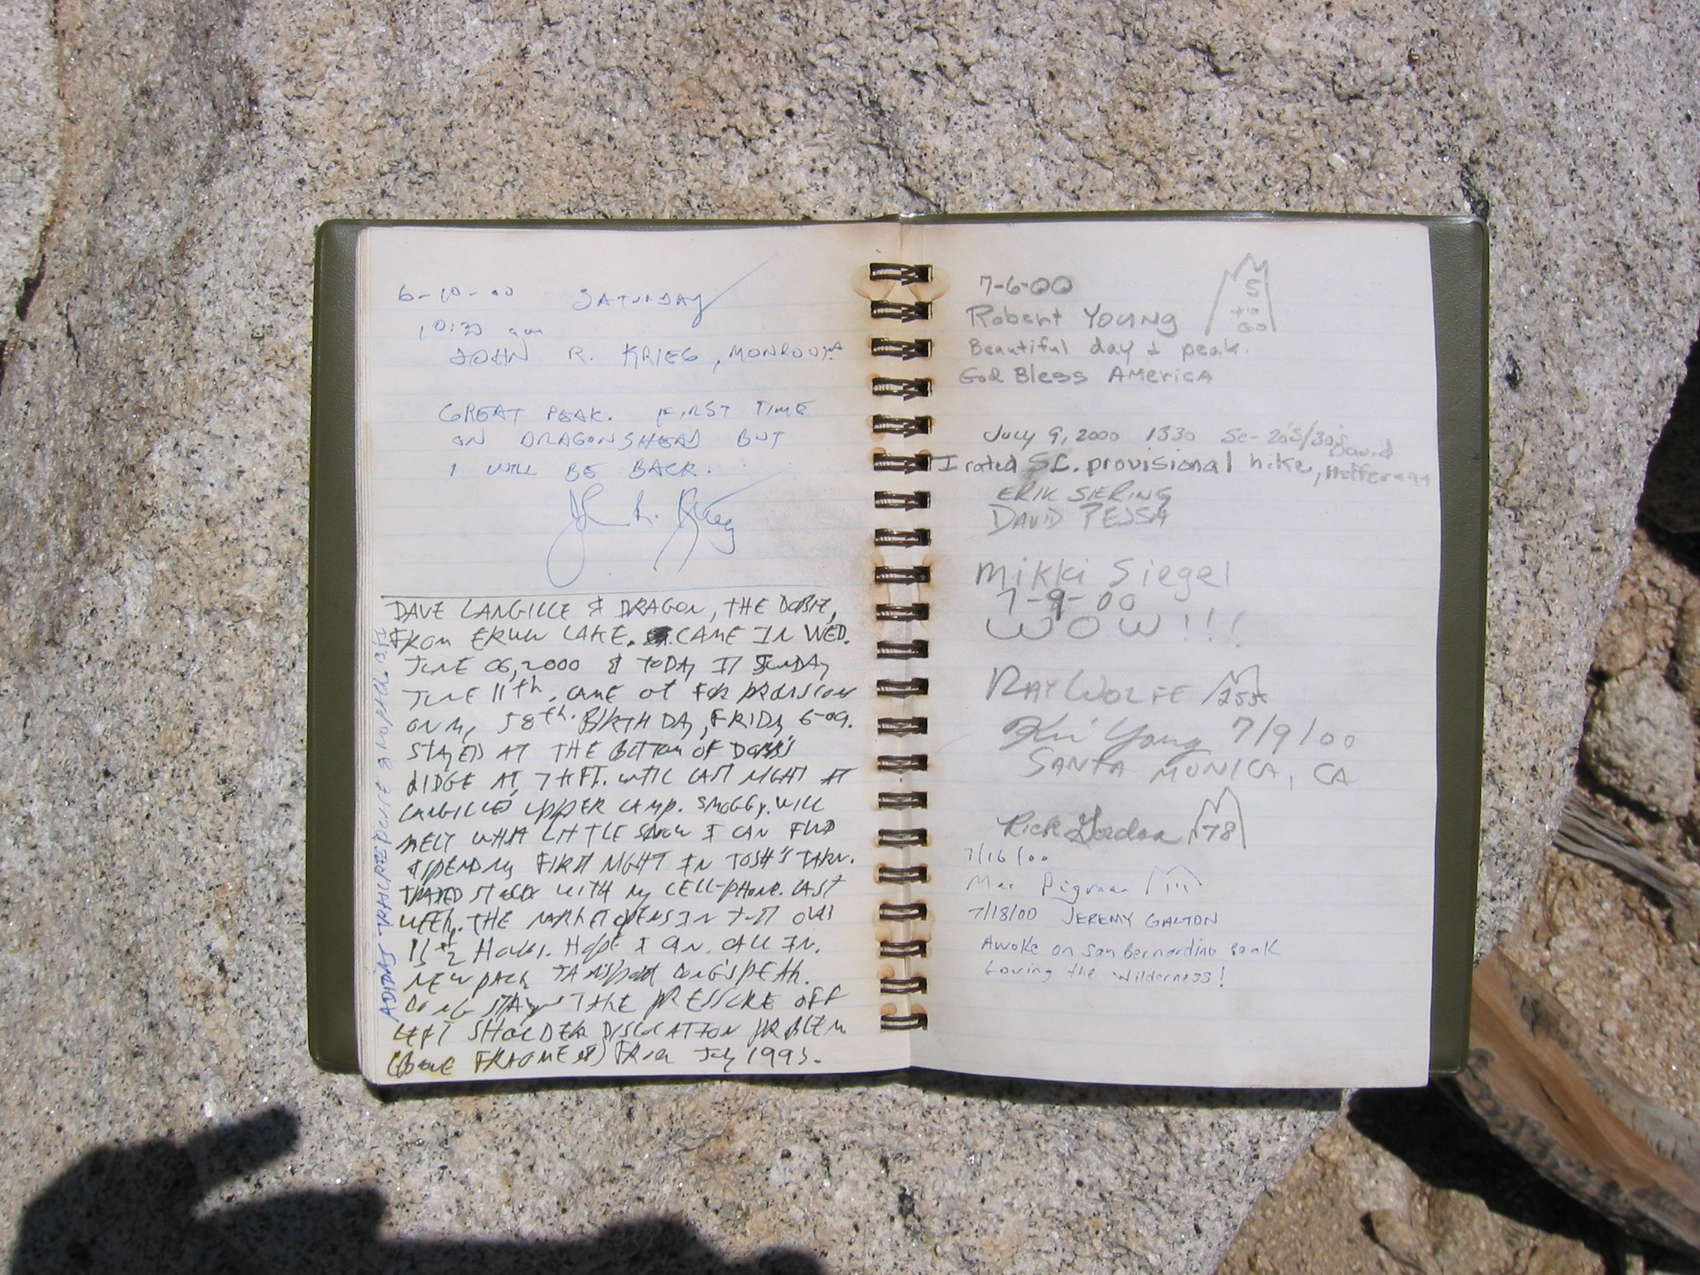 6-10-00 SATURDAY
10:20 am
JOHN R. KRIEG, MONROVIA
GREAT PEAK. FIRST TIME
ON DRAGONSHEAD BUT
I WILL BE BACK.
John R. Krieg
DAVE LANGILLE & DRAGON, THE DOBIE,
FROM ERWIN LAKE. CAME IN WED.
JUNE 06, 2000 & TODAY IT SUNDAY
JUNE 11th. CAME OUT FOR PROVISIONS
ON MY 58th. BIRTHDAY, FRIDAY 6-09.
STAYED AT THE BOTTOM OF
RIDGE AT, 7 HFT. UNTIL LAST NIGHT AT
LANGILLE'S UPPER CAMP. SMOGGY. WILL
MELT WHAT LITTLE SNOW I CAN FIND
& SPEND MY FIRST NIGHT IN TOSH'S TARN.
TRADED STOCK WITH MY CELL-PHONE. LAST
WEEK. THE MARKET OPENS IN
HOURS. HOPE I CAN. CALL IN.
NEW PACK
TAKE PRESSURE OFF
LEFT SHOLDER DISLOCATION PROBLEM
(BONE FRAGMENT) FROM July 1993.
ADIDAS TRAIL RESPONSE
7-6-00
5 to GO
Robert YOUNG
Beautiful day & peak.
God Bless AMERICA
July 9, 2000 1330 SC-20's/30's
I rated S.C. provisional hike, David Heffernan
ERIK SIERING
DAVID PESSA
Mikki Siegel
7-9-00
WOW!!!
RAY WOLFE 255
Kii Yang 7/9/00
SANTA MONICA, CA
Rick Gordon 78
7/16/00
Mac Pigman III
7/18/00 JEREMY GALTON
Awoke on San Bernardino Peak
Loving the Wilderness!